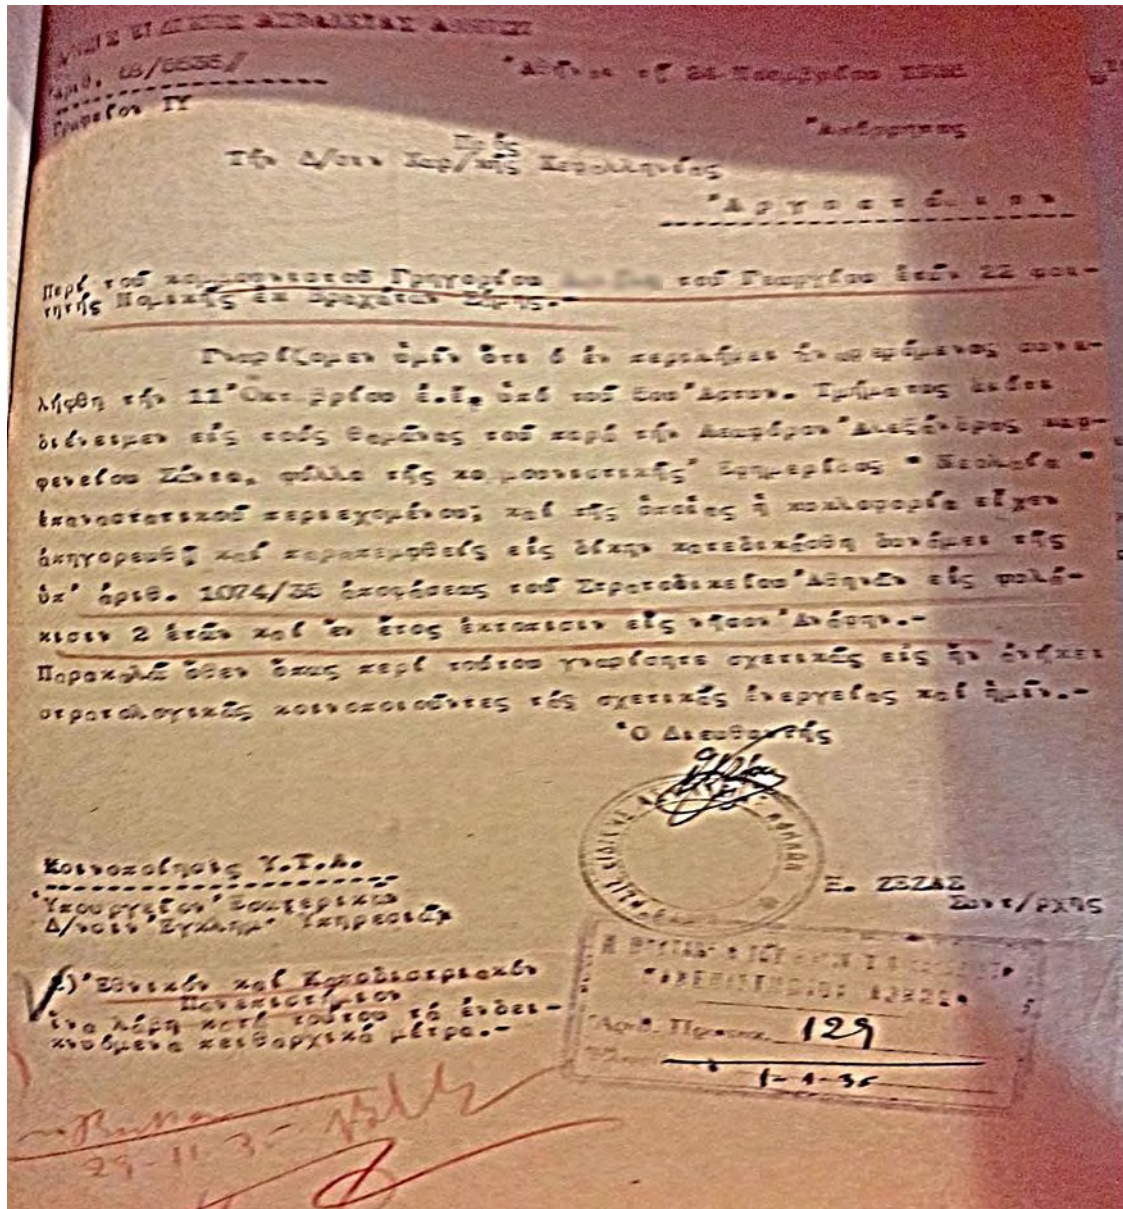 Δ/ΝΣΙΣ ΕΙΔΙΚΗΣ ΑΣΦΑΛΕΙΑΣ ΑΘΗΝΩΝ
Ἀριθ.
Γραφεῖον ΙΥ
Ἀθῆναι τῇ 24 Νοεμβρίου 1935
Πρός
Τήν Δ/σιν Χωρ/κῆς Κεφαλληνίας
Ἀργοστόλιον
Περί τοῦ κομμουνιστοῦ Γρηγορίου τοῦ Γεωργίου ἐτῶν 22 φοι-
τητῆς Νομικῆς ἐκ Βραχάτων Σάμης.-
Γνωρίζομεν ὑμῖν ὅτι ὁ ἐν περιλήψει ἀναφερόμενος συνε-
λήφθη τήν 11 Ὀκτωβρίου ἐ.ἔ. ὑπό τοῦ Ἀστυν. Τμήματος διότι
διένειμεν εἰς τούς θαμῶνας τοῦ παρά τήν Λεωφόρον Ἀλεξάνδρας καφ-
φενείου φύλλα τῆς κομμουνιστικῆς Ἐφημερίδος " Νεολαία "
ἐπαναστατικοῦ περιεχομένου; καί τῆς ὁποίας ἡ κυκλοφορία εἶχεν
ἀπηγορευθῆ καί παραπεμφθείς εἰς δίκην κατεδικάσθη δυνάμει τῆς
ὑπ' ἀριθ. 1074/35 ἀποφάσεως τοῦ Στρατοδικείου Ἀθηνῶν εἰς φυλά-
κισιν 2 ἐτῶν καί ἕν ἔτος ἐκτόπισιν εἰς νῆσον Ἀνάφην.-
Παρακαλῶ ὅθεν ὅπως περί τούτου γνωρίσητε σχετικῶς εἰς ἥν ἀνήκει
στρατολογικῶς κοινοποιοῦντες τάς σχετικάς ἐνεργείας καί ἡμῖν.-
Ὁ Διευθυντής
Κοινοποίησις Υ.Τ.Α.
Ὑπουργεῖον Ἐσωτερικῶν
Δ/νσιν Ἐγκλημ Ὑπηρεσιῶν
Ξ. ΖΕΖΑΣ
Συντ/ρχης
) Ἐθνικόν καί Καποδιστριακόν
Πανεπιστήμιον
ἵνα λάβῃ κατά τούτου τά ἐνδει-
κνυόμενα πειθαρχικά μέτρα.-
ΠΑΝΕΠΙΣΤΗΜΙΟΝ ΑΘΗΝΩΝ
Ἀριθ. Πρωτοκ. 129
29-11-35